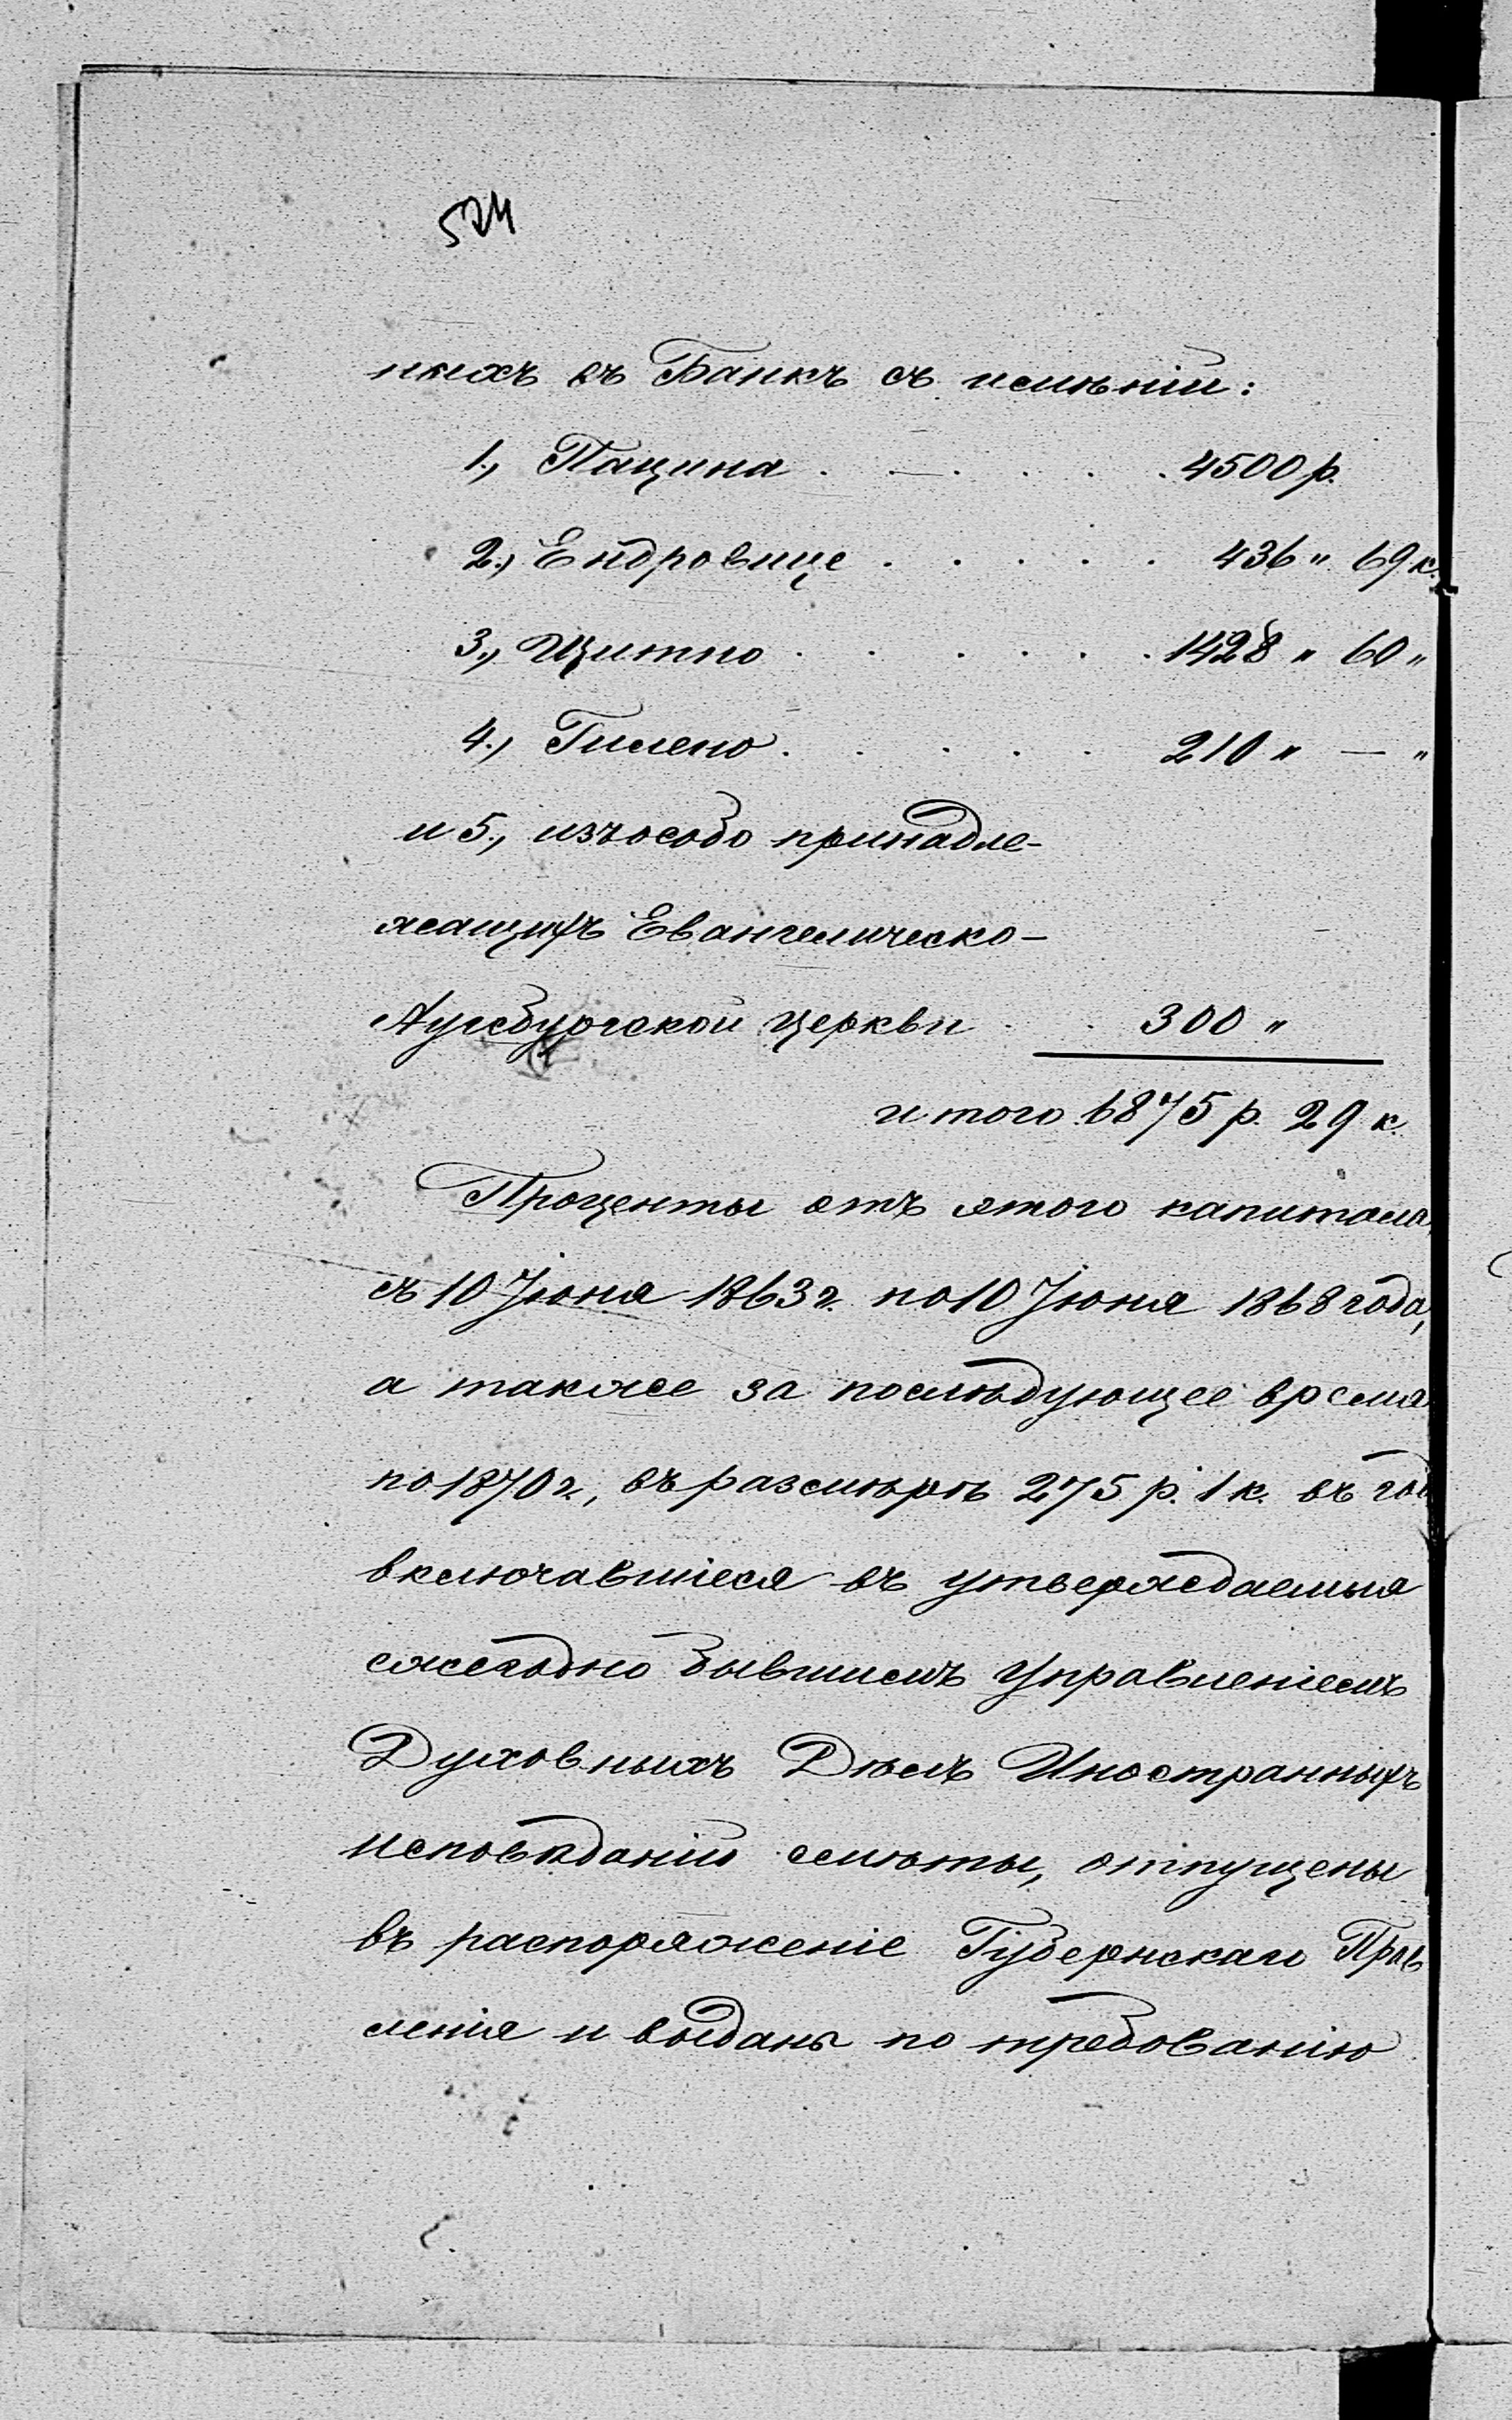 524
ныхъ въ Банкъ съ имѣній:
1., Пацина . — . . . . 4500 р.
2., Ендровице . . . . . 436 " 69 к.
3., Щитно . . . . . . 1428 " 60 "
4., Гилено . . . . . 210 " — "
и 5., изъ особо принадле-
жащихъ Евангелическо-
Аугсбургской церкви . . 300 "
итого 6875 р. 29 к.
Проценты отъ этого капитала,
съ 10 Іюня 1863 г. по 10 Іюня 1868 года,
а также за послѣдующее время
по 1870 г., въ размѣрѣ 275 р. 1 к. въ год
включавшіеся въ утверждаемыя
ежегодно бывшимъ Управленіемъ
Духовныхъ Дѣлъ Иностранныхъ
исповѣданій смѣты, отпущены
въ распоряженіе Губернскаго Прав
ленія и выданы по требованію